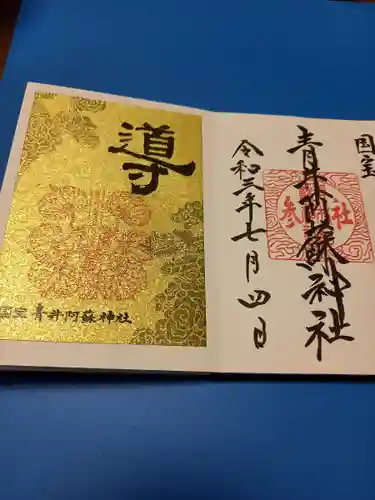 国宝
青井阿蘇神社
参拝
社
令和三年七月四日
導
国宝 青井阿蘇神社